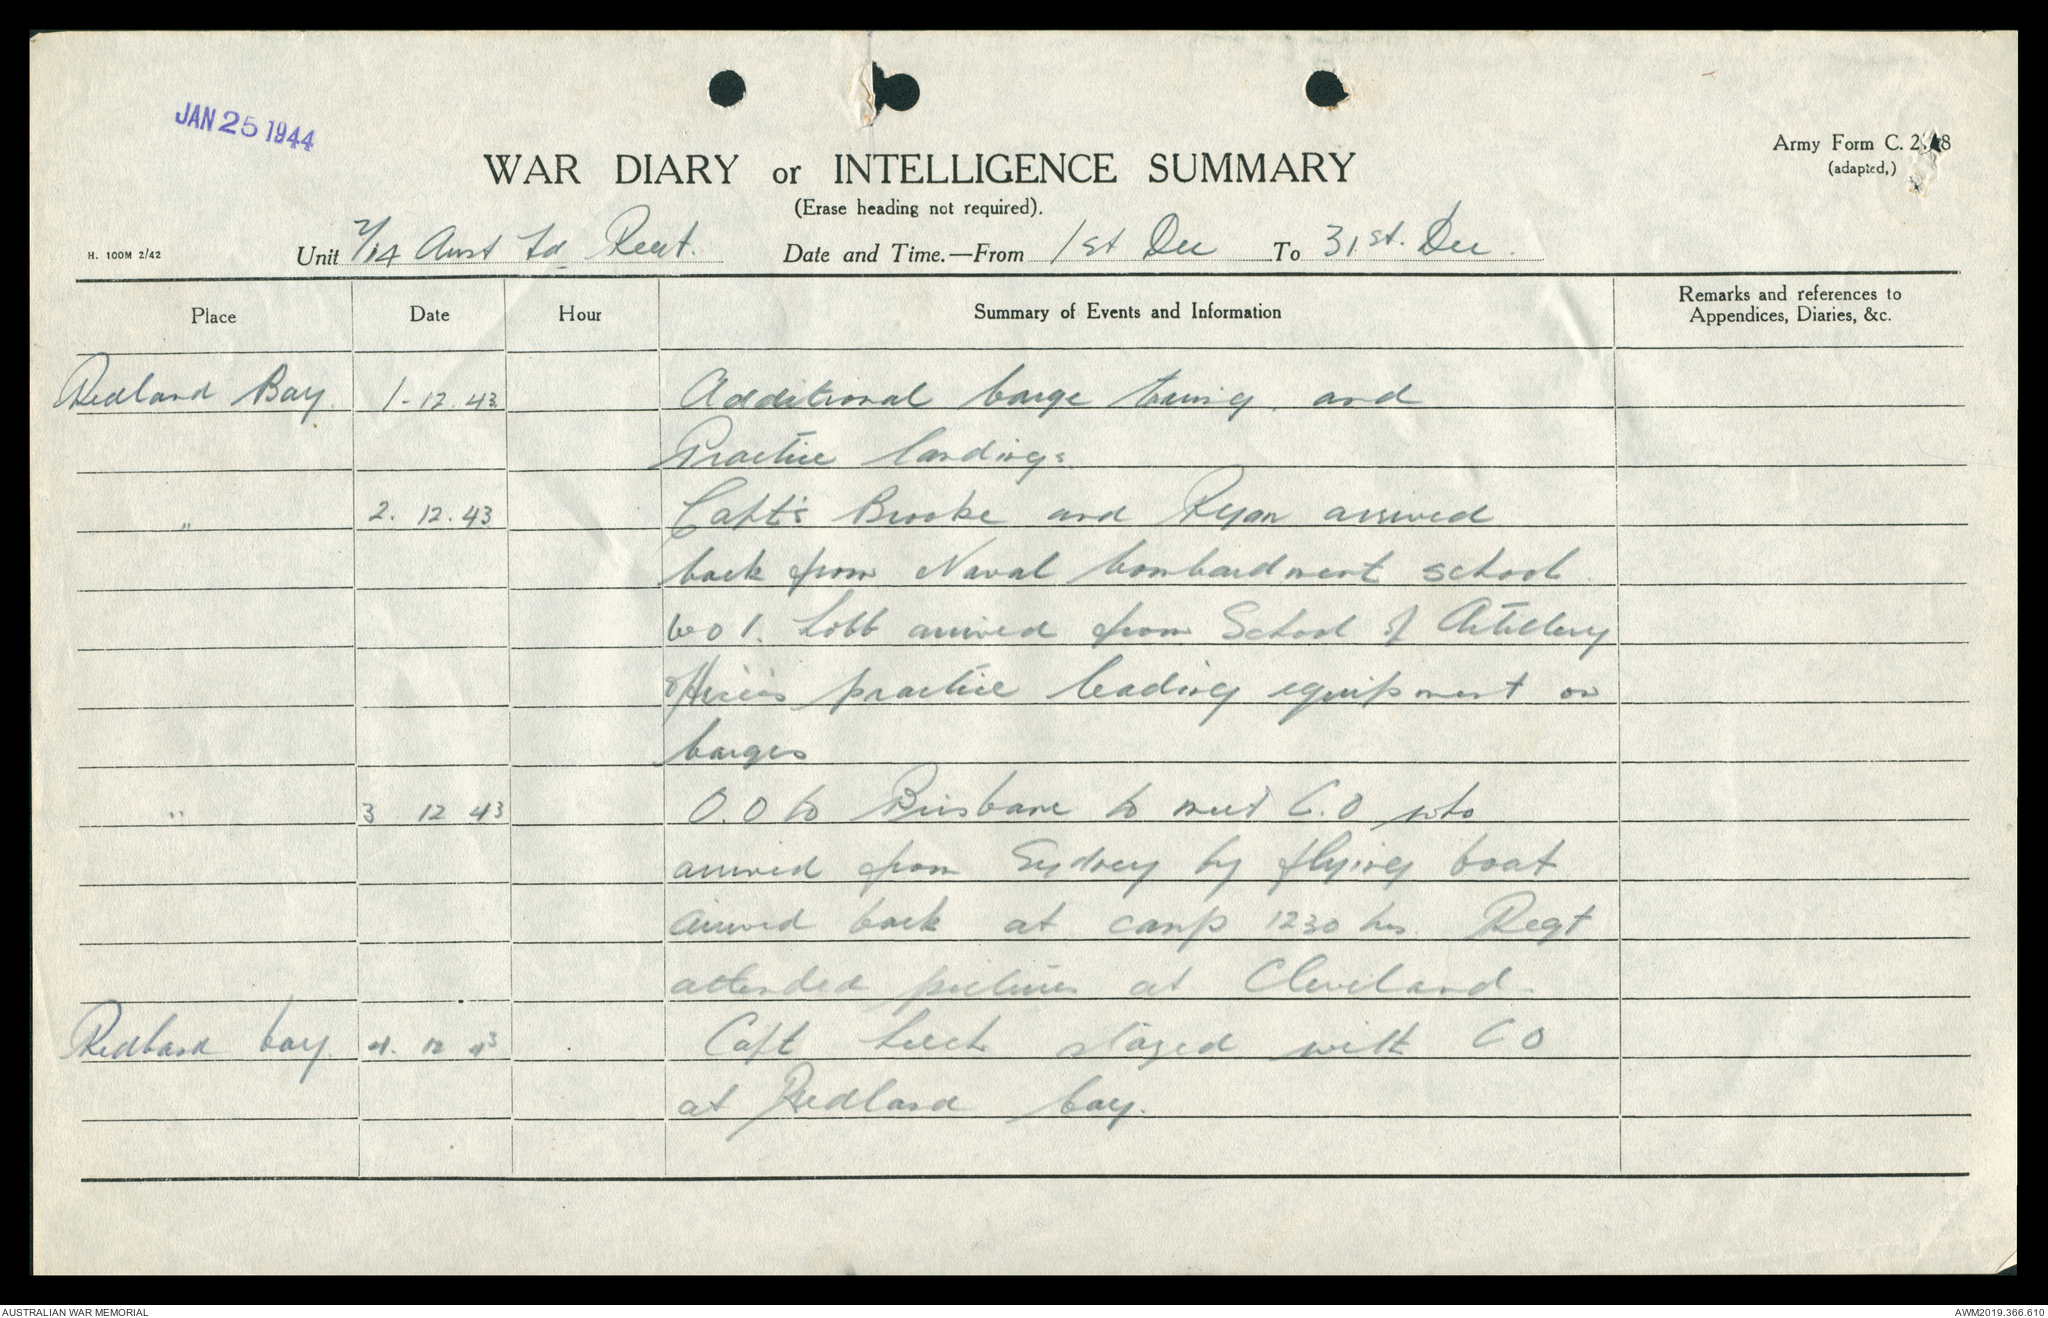 JAN 25 1944
Army Form C. 2118
(adapted,)
WAR DIARY or INTELLIGENCE SUMMARY
(Erase heading not required).
H. 100M 2/42
Unit 2/14 Aust Fd Regt. Date and Time.—From 1st Dec To 31st. Dec.
Place Date Hour Summary of Events and Information Remarks and references to
Appendices, Diaries, &c.
Redland Bay. 1-12.43 Additional barge traing. and
Practice landings
" 2.12.43 Capt's Brooke and Ryan arrived
back from Naval bombardment school
WO1. Lobb arrived from School of Artillery
Officers practice loading equipment on
barges
" 3 12 43 O.O to Brisbane to meet C.O who
arrived from Sydney by flying boat
arrived back at camp 1230 hrs. Regt
attended pictures at Cleveland.
Redland bay. 4. 12 43 Capt Leech stayed with CO
at Redland bay.
AUSTRALIAN WAR MEMORIAL
AWM2019.366.610